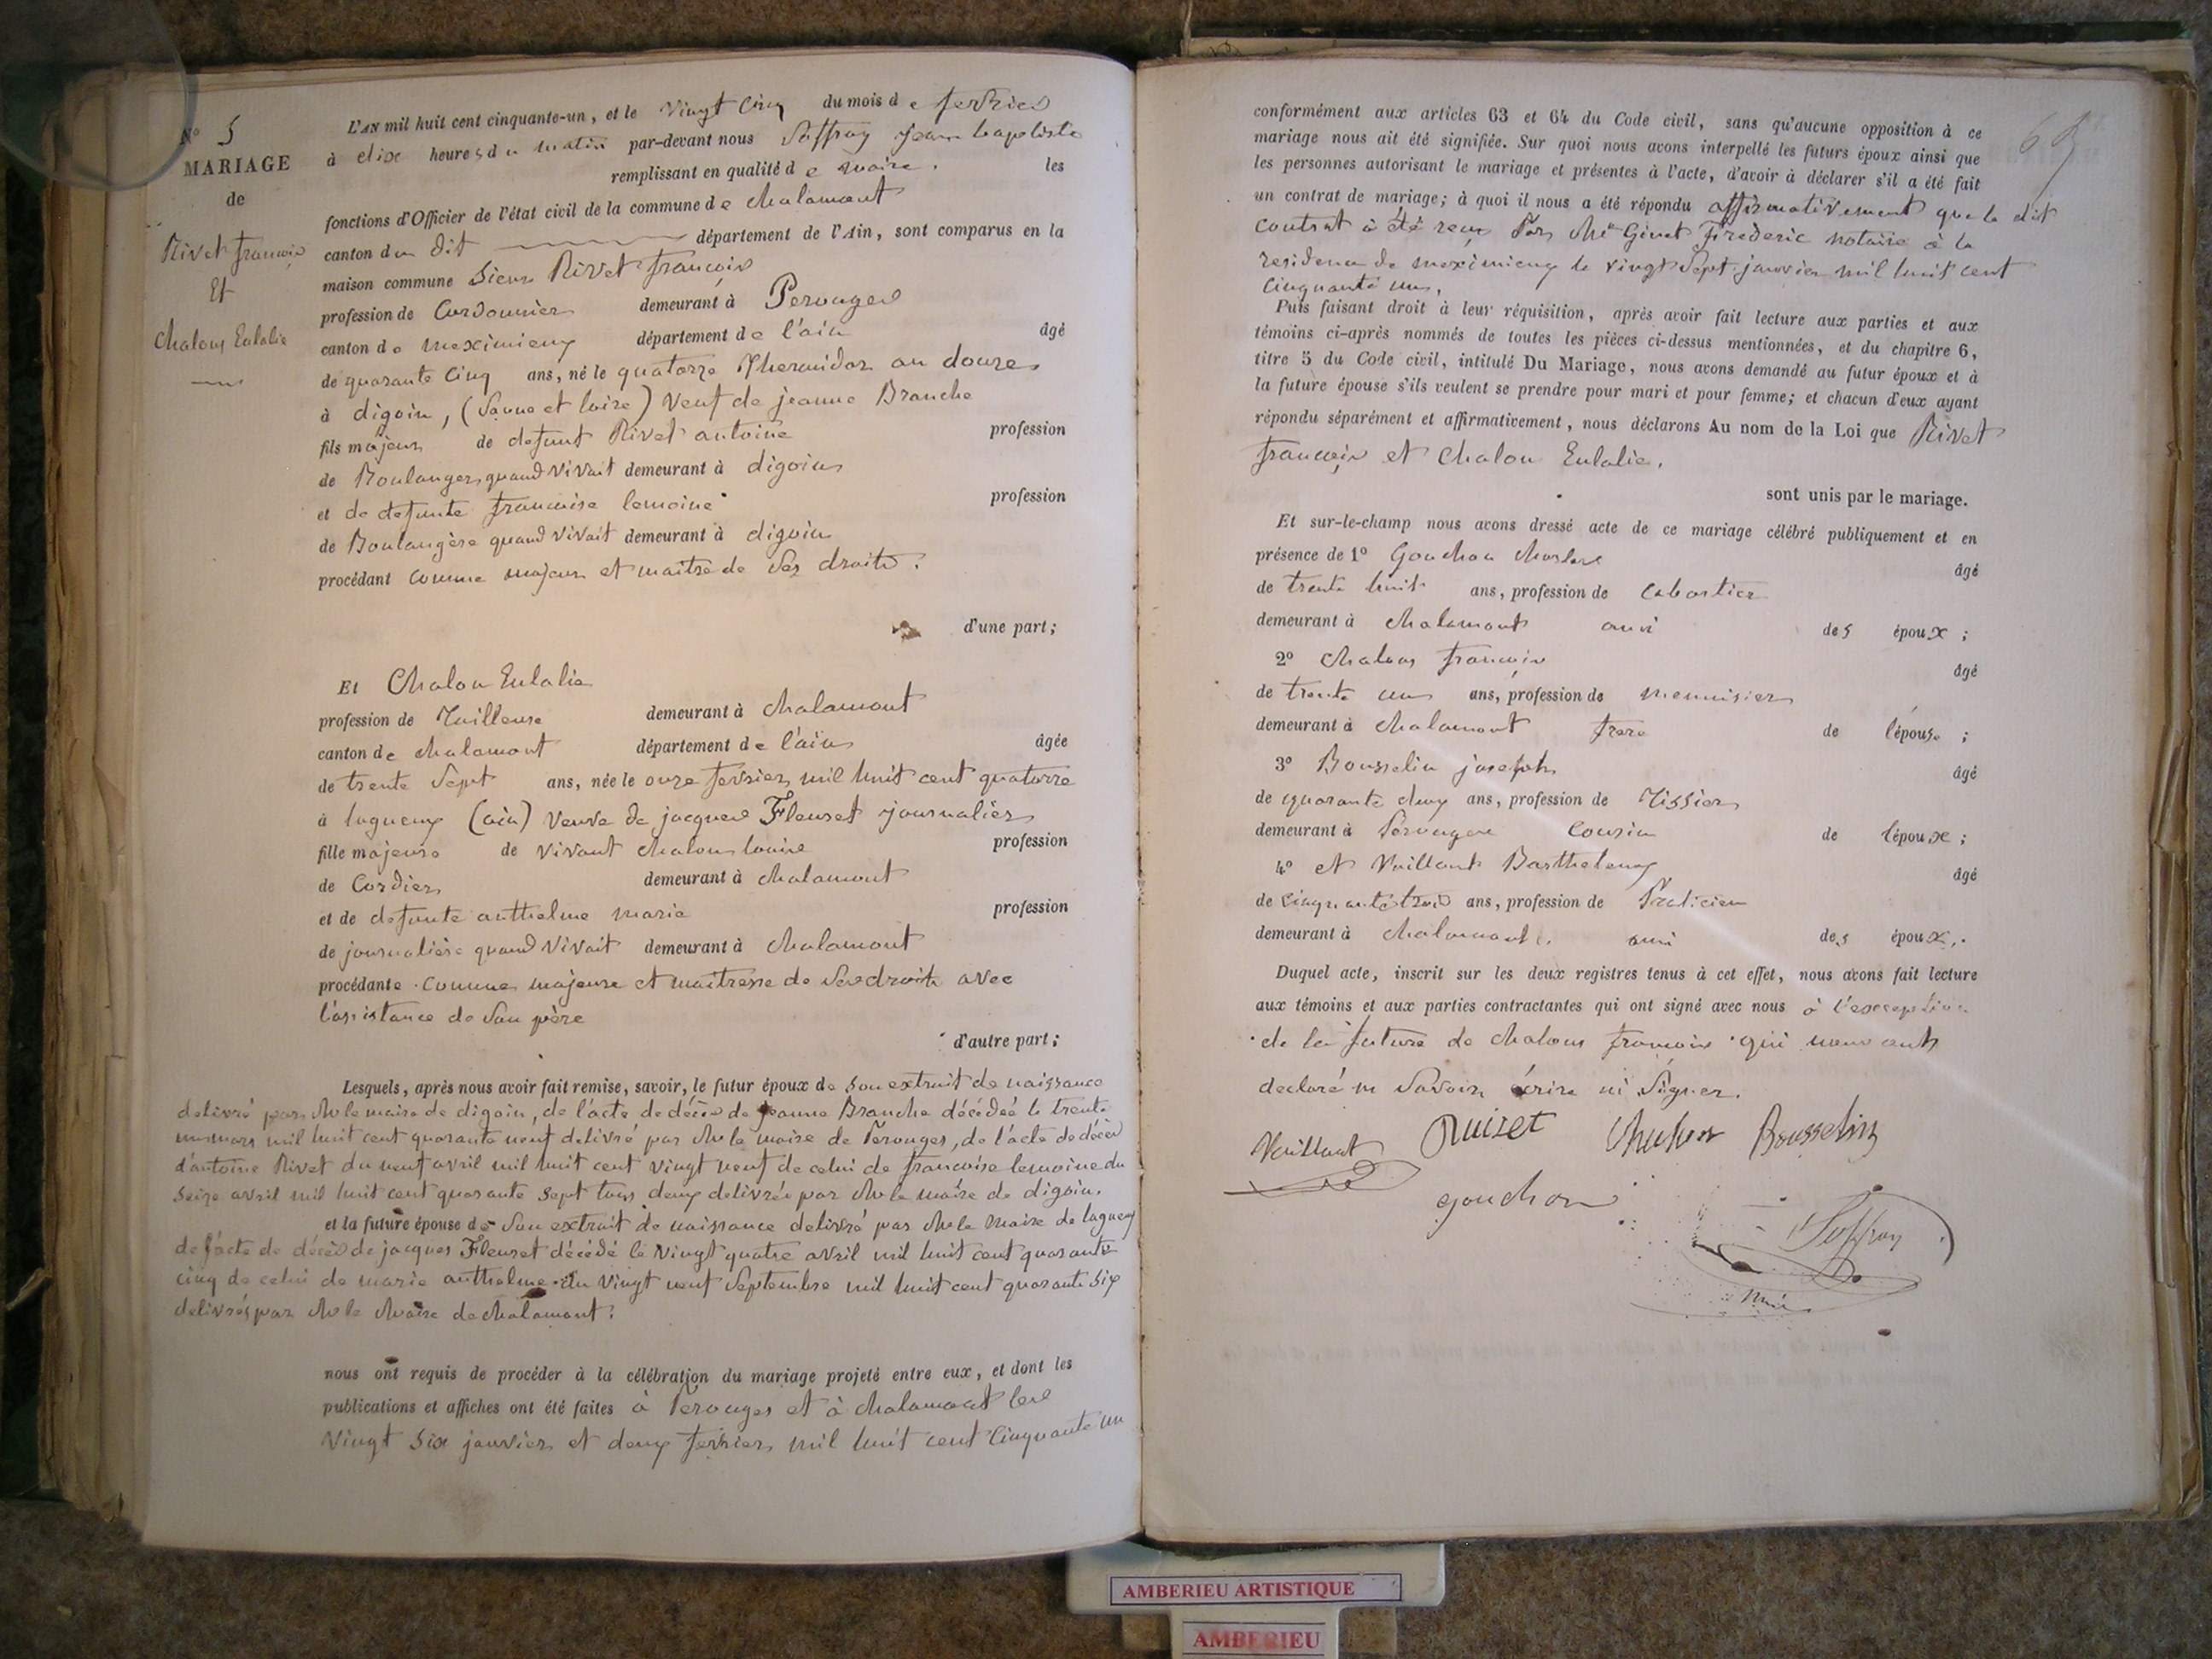 N° 5
MARIAGE
de
Rivet francois
Et
Chalon Eulalie
L'AN mil huit cent cinquante-un, et le Vingt Cinq du mois de fevrier
à dix heures du matin par-devant nous Suffray jean baptiste
remplissant en qualité de maire. les
fonctions d'Officier de l'état civil de la commune de chalamont
canton du dit département de l'Ain, sont comparus en la
maison commune Sieur Rivet francois
profession de Cordonnier demeurant à Perouges
canton de meximieux département de l'ain âgé
de quarante Cinq ans, né le quatorze Thermidor an douze
à digoin, (Saone et loire) Veuf de jeanne Branche
fils majeur de defunt Rivet antoine profession
de Boulanger quand Vivait demeurant à digoin
et de defunte francoise lemoine profession
de Boulangère quand Vivait demeurant à digoin
procédant comme majeur et maitre de Ses droits.
d'une part;
Et Chalon Eulalie
profession de Tailleuse demeurant à chalamont
canton de chalamont département de l'ain âgée
de trente Sept ans, née le onze fevrier mil huit cent quatorze
à lagneux (ain) Veuve de jacques Fleuret journalier
fille majeure de Vivant chalon louise profession
de Cordier demeurant à chalamont
et de defunte anthelme marie profession
de journalière quand Vivait demeurant à chalamont
procédante Comme majeure et maitresse de Ses droits avec
l'assistance de Son père
d'autre part;
Lesquels, après nous avoir fait remise, savoir, le futur époux de Son extrait de naissance
delivré par Mr le maire de digoin, de l'acte de décès de jeanne Branche décédée le trente
un mars mil huit cent quarante neuf delivré par Mr le maire de Perouges, de l'acte de décès
d'antoine Rivet du neuf avril mil huit cent Vingt neuf de celui de francoise lemoine du
Seize avril mil huit cent quarante Sept tous deux delivrés par Mr le maire de digoin.
et la future épouse de Son extrait de naissance delivré par Mr le Maire de lagneux
de l'acte de décès de jacques Fleuret décédé le Vingt quatre avril mil huit cent quarante
cinq de celui de marie anthelme du Vingt neuf Septembre mil huit cent quarante Six
delivrés par Mr le Maire de chalamont.
nous ont requis de procéder à la célébration du mariage projeté entre eux, et dont les
publications et affiches ont été faites à Perouges et à chalamont les
Vingt Six janvier et deux fevrier mil huit cent Cinquante un
conformément aux articles 63 et 64 du Code civil, sans qu'aucune opposition à ce
mariage nous ait été signifiée. Sur quoi nous avons interpellé les futurs époux ainsi que
les personnes autorisant le mariage et présentes à l'acte, d'avoir à déclarer s'il a été fait
un contrat de mariage; à quoi il nous a été répondu affirmativement que le dit
contrat à été reçu Par Me Ginet Frederic notaire à la
residence de meximieux le vingt Sept janvier mil huit cent
Cinquante un,
Puis faisant droit à leur réquisition, après avoir fait lecture aux parties et aux
témoins ci-après nommés de toutes les pièces ci-dessus mentionnées, et du chapitre 6,
titre 5 du Code civil, intitulé Du Mariage, nous avons demandé au futur époux et à
la future épouse s'ils veulent se prendre pour mari et pour femme; et chacun d'eux ayant
répondu séparément et affirmativement, nous déclarons Au nom de la Loi que Rivet
francois et Chalon Eulalie.
sont unis par le mariage.
Et sur-le-champ nous avons dressé acte de ce mariage célébré publiquement et en
présence de 1° Gouchon Charles âgé
de trente huit ans, profession de Cabartier
demeurant à chalamont ami des époux;
2° Chalon francois âgé
de trente un ans, profession de menuisier
demeurant à chalamont frere de l'épouse;
3° Bousselin joseph âgé
de quarante deux ans, profession de Tissier
demeurant à Perouges Cousin de l'époux;
4° et Vaillant Barthelemy âgé
de cinquante trois ans, profession de Praticien
demeurant à chalamont. ami des époux.
Duquel acte, inscrit sur les deux registres tenus à cet effet, nous avons fait lecture
aux témoins et aux parties contractantes qui ont signé avec nous à l'exception
de la future de chalon francois qui nous ont
declaré ne Savoir écrire ni Signer.
Vaillant Ruiset Bousselin
gouchon
Suffray
AMBERIEU ARTISTIQUE
AMBERIEU